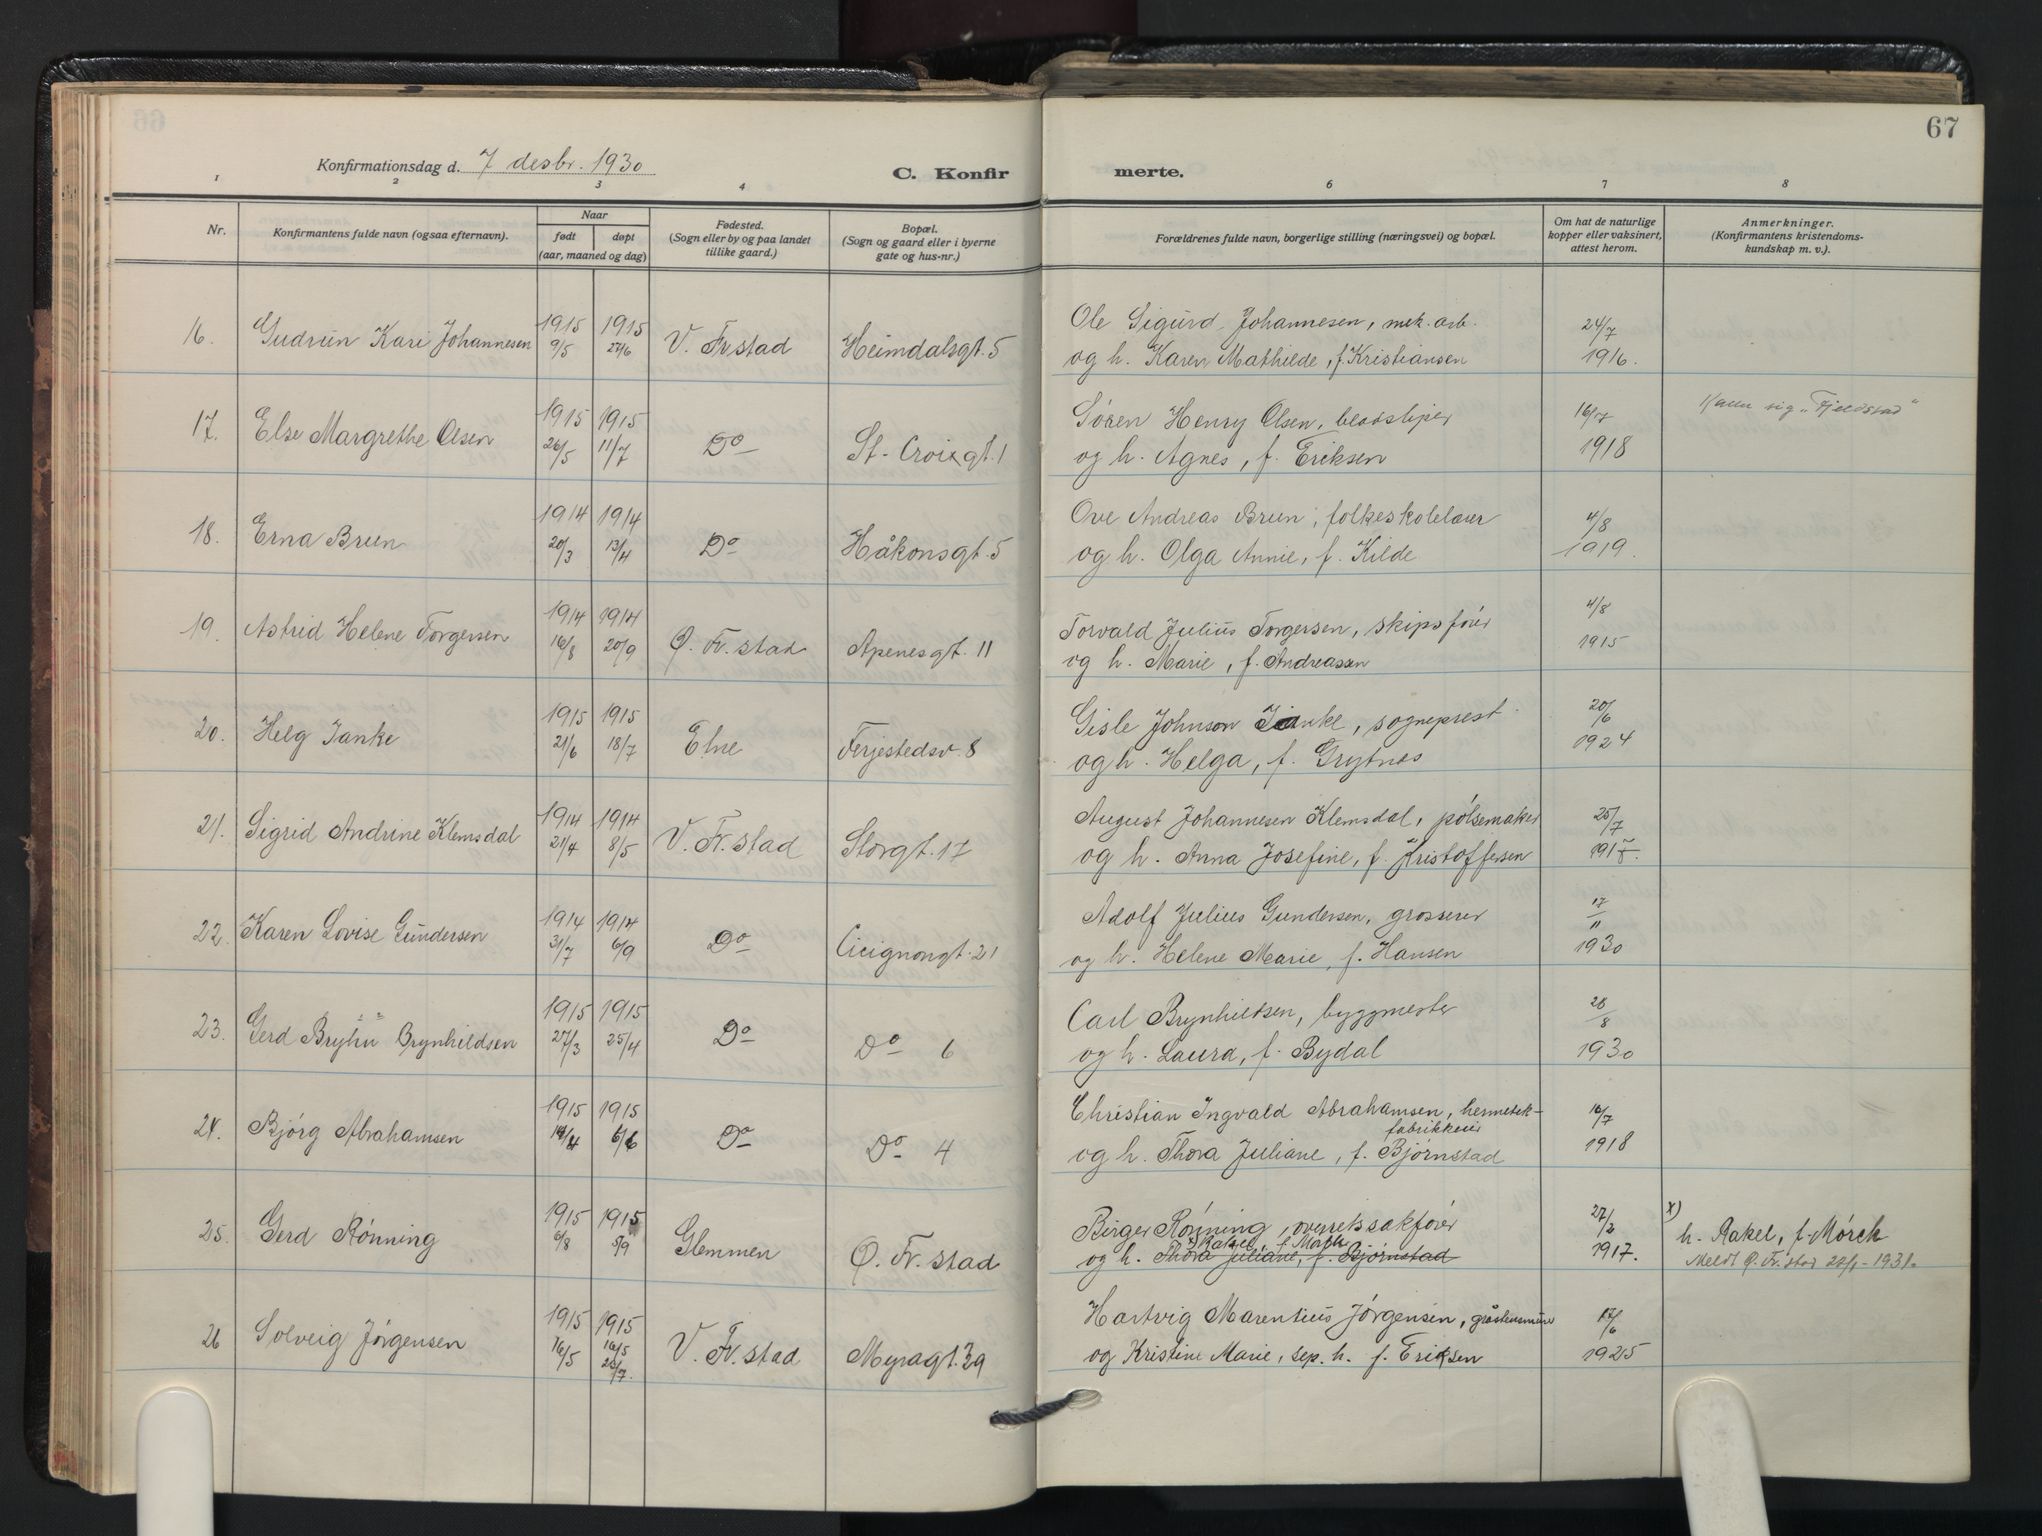 67
Konfirmationsdag d. 7 desbr. 1930
C. Konfirmerte.
1 2 3 4 6 7 8
Nr.
Konfirmantens fulde navn (ogsaa efternavn).
Naar
født døpt
(aar, maaned og dag)
Fødested.
(Sogn eller by og paa landet
tillike gaard.)
Bopæl.
(Sogn og gaard eller i byerne
gate og hus-nr.)
Forældrenes fulde navn, borgerlige stilling (næringsvei) og bopæl.
Om hat de naturlige
kopper eller vaksinert,
attest herom.
Anmerkninger.
(Konfirmantens kristendoms-
kundskap m. v.).
16. Gudrun Kari Johannesen 1915 9/5 1915 27/6 V. Frstad Heimdalsgt. 5
Ole Sigurd Johannesen, mek. arb.
og h. Karen Mathilde, f. Kristiansen
24/7 1916.
17. Else Margrethe Olsen 1915 26/5 1915 11/7 Do St. Croixgt. 1
Sören Henry Olsen,
og h. Agnes, f. Eriksen
16/7 1918
Kaller sig „Fjeldstad"
18. Erna Brun 1914 20/3 1914 13/4 Do Håkonsgt. 5
Ove Andreas Brun, folkeskolelærer
og h. Olga Annie, f. Kilde
4/8 1919.
19. Astrid Helene Torgersen 1914 16/8 1914 20/9 Ø. Fr. stad Apenesgt. 11
Torvald Julius Torgersen, skipsförer
og h. Marie, f. Andreassen
4/8 1915
20. Helg Janke 1915 21/6 1915 18/7 Elne Ferjestedsv. 8
Gisle Johnson Janke, sogneprest
og h. Helga, f. Grytnes
20/6 1924
21. Sigrid Andrine Klemsdal 1914 21/4 1914 8/5 V. Fr. stad Storgt. 17
August Johannesen Klemsdal, pölsemaker
og h. Anna Josefine, f. Kristoffersen
25/7 1915.
22. Karen Lovise Gundersen 1914 31/7 1914 6/9 Do Cicignongt. 21
Adolf Julius Gundersen, grosserer
og h. Helene Marie, f. Hansen
17/11 1930
23. Gerd Bryhn Brynhildsen 1915 27/3 1915 25/4 Do Do 6
Carl Brynhildsen, byggmester
og h. Laura, f. Bydal
28/8 1930
24. Bjørg Abrahamsen 1915 14/4 1915 6/6 Do Do 4
Christian Ingvald Abrahamsen, hermetik-
fabrikkeier
og h. Thora Juliane, f. Björnstad
16/7 1918
25. Gerd Rönning 1915 6/8 1915 5/9 Glemmen Ø. Fr. stad
Birger Rönning, overrettssakförer
x) Rakel, f. Mörch
og h. Thora Juliane, f. Björnstad
27/2 1917.
x) h. Rakel, f. Mörch
Meldt Ø. Fr. stad 28/1 - 1931.
26 Solveig Jørgensen 1915 16/5 1915 16/5 25/7. V. Fr. stad Myragt. 39
Hartvig Marentius Jörgensen, gråstensmurer
og Kristine Marie, sep. h. f. Eriksen
17/6 1925